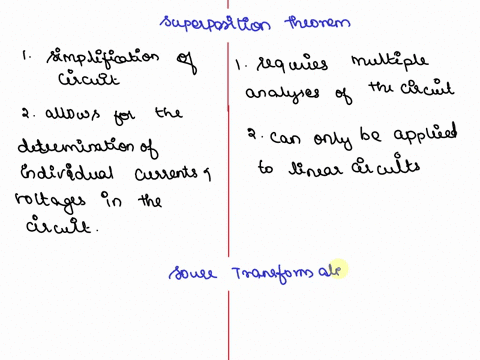 Superposition Theorem
1. Simplification of
circuit
2. allows for the
determination of
individual currents &
voltages in the
circuit.
1. requries multiple
analyses of the circuit
2. can only be applied
to linear circuits
Souce Transformati